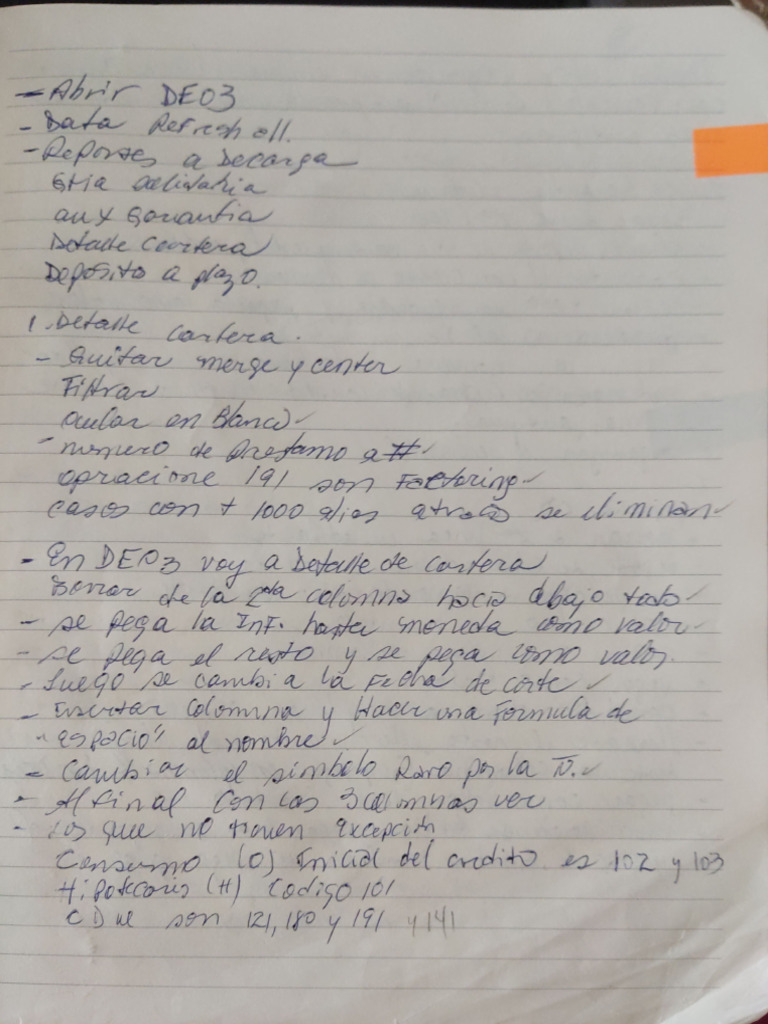 - Abrir DE03
- Data Refresh all.
- Reportes a Decarga
Gtia
aux Garantia
Detalle Cartera
Deposito a plazo.
1. Detalle cartera.
- Quitar merge y center
Filtrar
en Blanco
- numero de Prestamo a #
opracione 191 son Factoring
casos con + 1000 dias atraso se eliminan
- En DE03 voy a Detalle de cartera
Borrar de la 2da columna hacia abajo todo
- se pega la Inf. hasta moneda como valor
- se pega el resto y se pega como valor.
- Luego se cambia la Fecha de corte
- Insertar Columna y Hacer una Formula de
"espacio" al nombre
- Cambiar el simbolo Raro por la Ñ.
- Al final Con las 3 columnas ver
- Los que no tienen excepción
Consumo (O) Inicial del credito es 102 y 103
(H) Codigo 101
son 121, 180 y 191 y 141